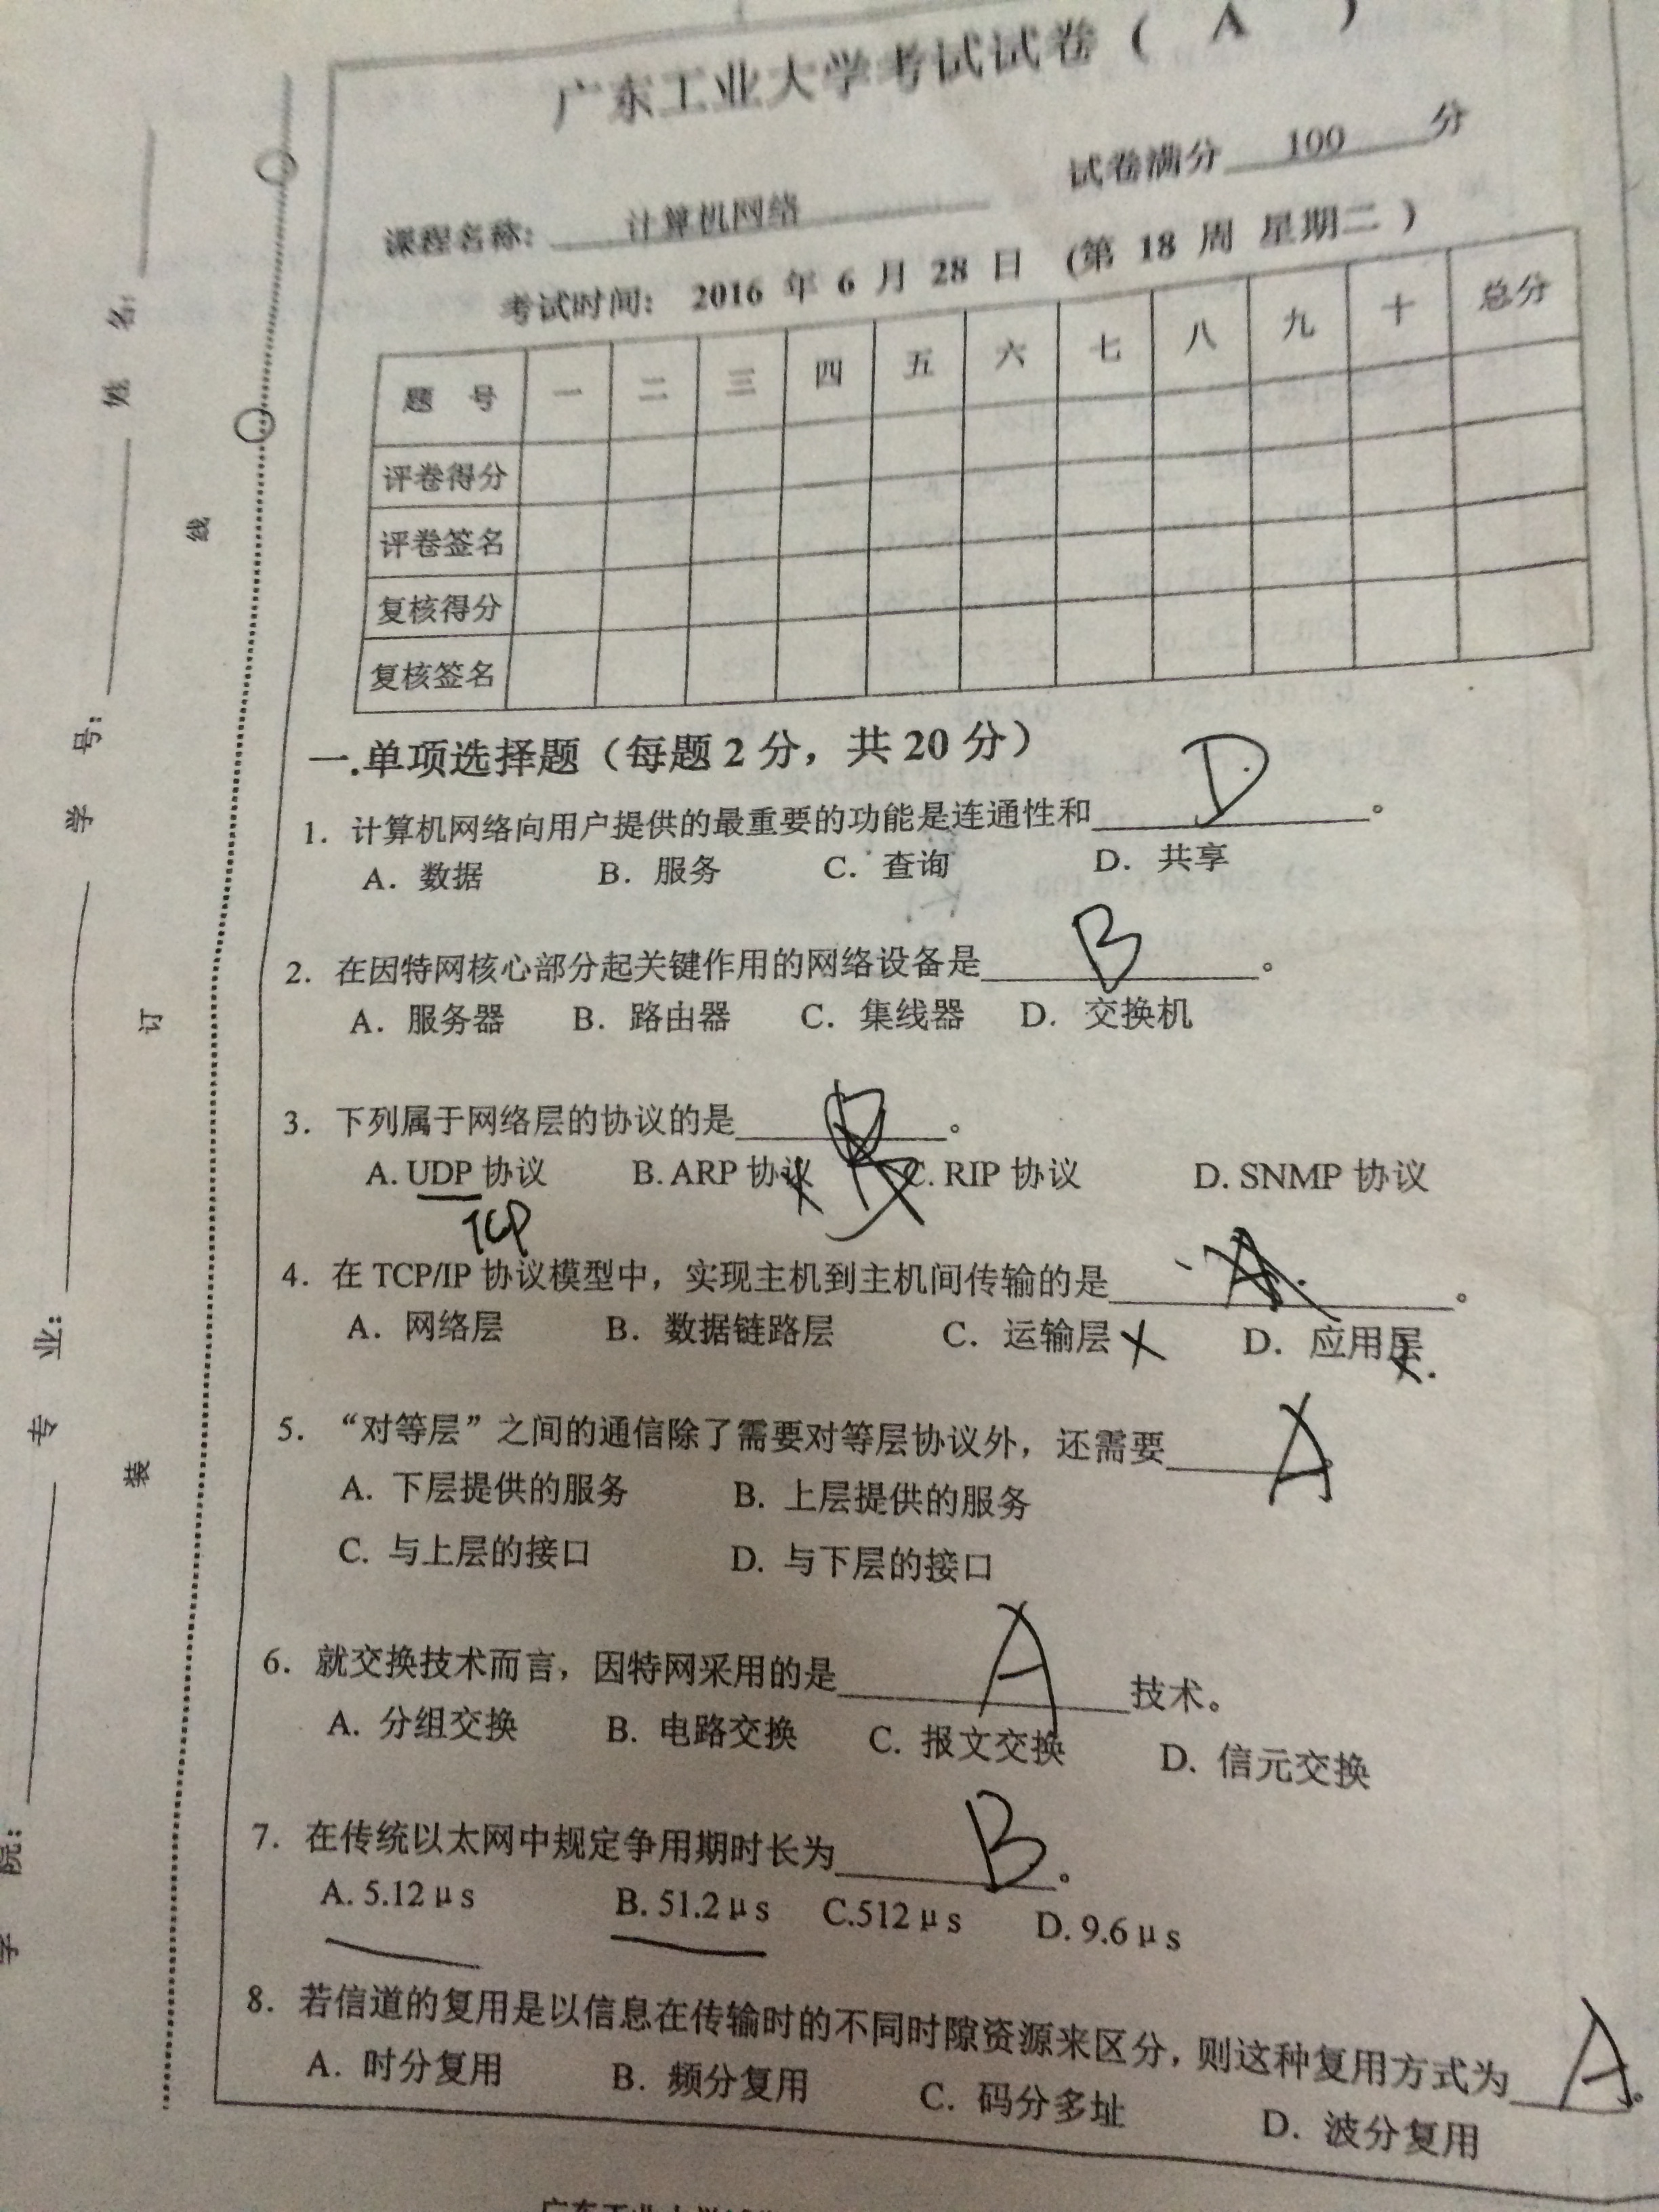 广东工业大学考试试卷 ( A )
课程名称: 计算机网络 试卷满分 100 分
考试时间: 2016 年 6 月 28 日 (第 18 周 星期二 )
题 号 一 二 三 四 五 六 七 八 九 十 总分
评卷得分
评卷签名
复核得分
复核签名
一.单项选择题（每题 2 分，共 20 分）
1. 计算机网络向用户提供的最重要的功能是连通性和 D 。
A. 数据 B. 服务 C. 查询 D. 共享
2. 在因特网核心部分起关键作用的网络设备是 B 。
A. 服务器 B. 路由器 C. 集线器 D. 交换机
3. 下列属于网络层的协议的是 。
A. UDP 协议 B. ARP 协议 C. RIP 协议 D. SNMP 协议
TCP
4. 在 TCP/IP 协议模型中，实现主机到主机间传输的是 A 。
A. 网络层 B. 数据链路层 C. 运输层 D. 应用层
5. “对等层”之间的通信除了需要对等层协议外，还需要 A
A. 下层提供的服务 B. 上层提供的服务
C. 与上层的接口 D. 与下层的接口
6. 就交换技术而言，因特网采用的是 A 技术。
A. 分组交换 B. 电路交换 C. 报文交换 D. 信元交换
7. 在传统以太网中规定争用期时长为 B 。
A. 5.12 μ s B. 51.2 μ s C.512 μ s D. 9.6 μ s
8. 若信道的复用是以信息在传输时的不同时隙资源来区分，则这种复用方式为 A 。
A. 时分复用 B. 频分复用 C. 码分多址 D. 波分复用
姓 名:
学 号:
专 业:
学 院:
线
订
装